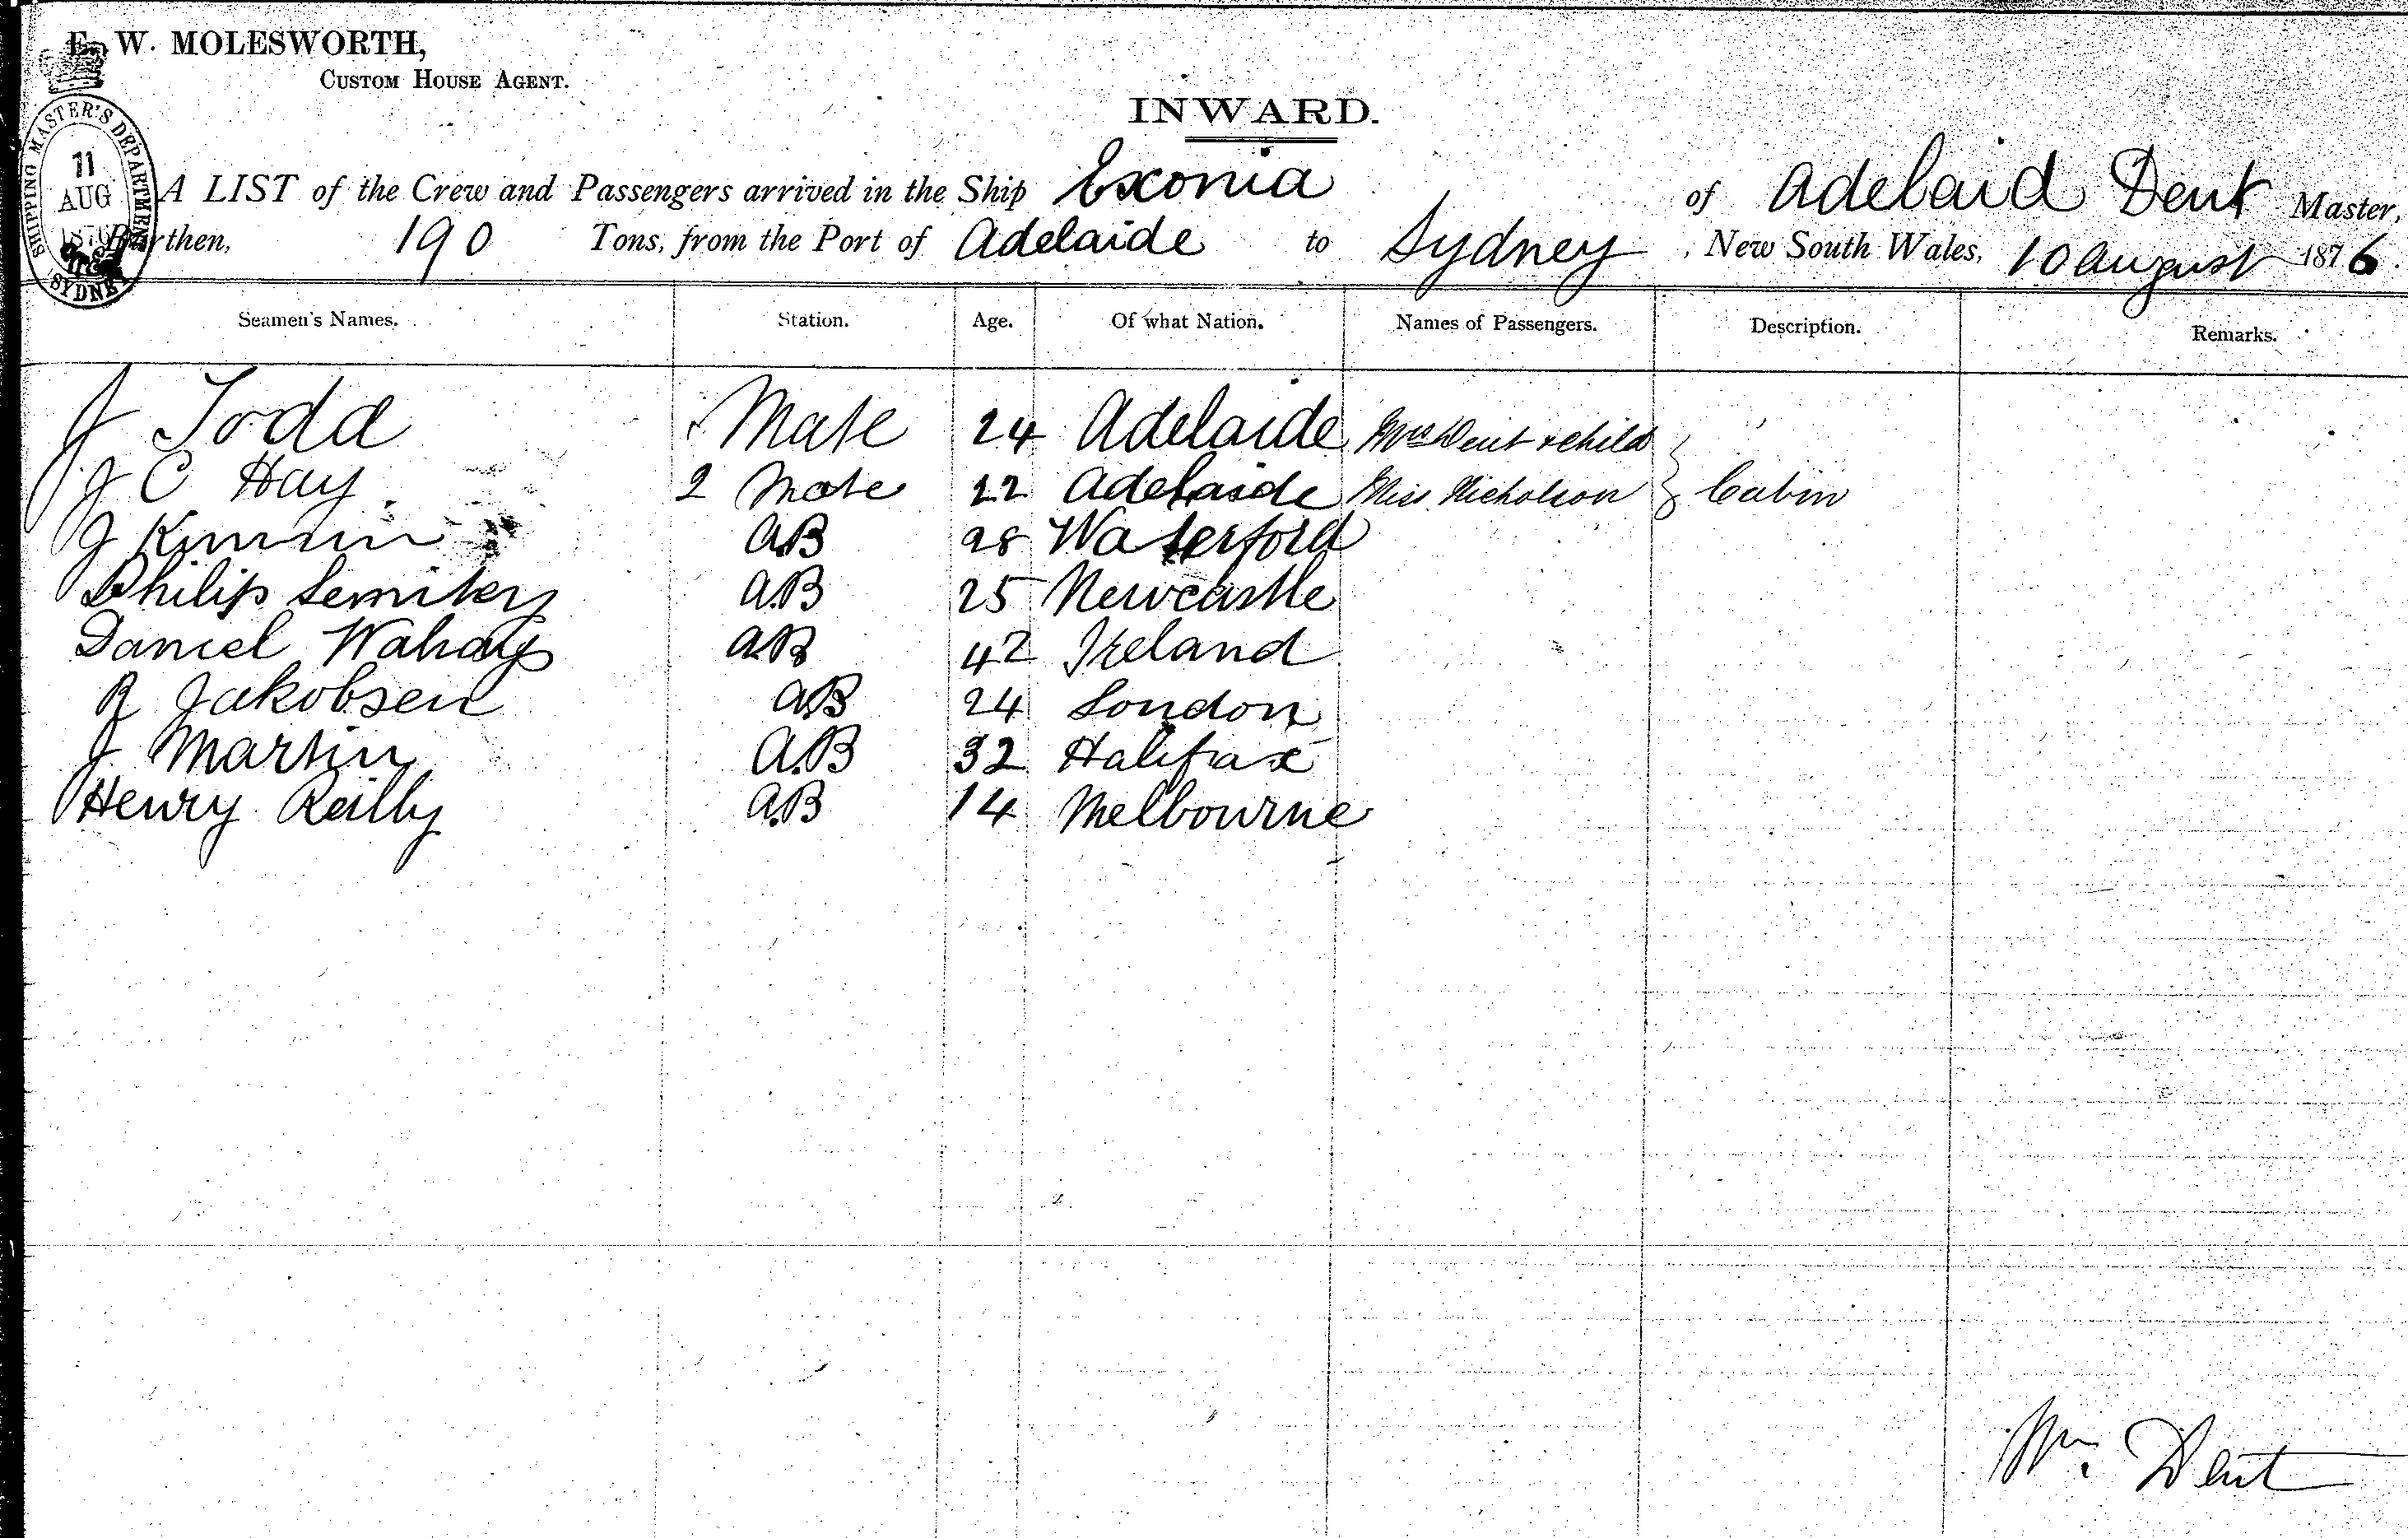 E. W. MOLESWORTH,
CUSTOM HOUSE AGENT.
INWARD.
SHIPPING MASTER'S DEPARTMENT
11
AUG
1876
SYDNEY
A LIST of the Crew and Passengers arrived in the Ship Exonia of Adelaid Dent Master,
Burthen, 190 Tons, from the Port of Adelaide to Sydney, New South Wales, 10 August 1876.
Seamen's Names. Station. Age. Of what Nation. Names of Passengers. Description. Remarks.
J Todd Mate 24 Adelaide Mrs Dent & child
J C Hay 2 Mate 22 Adelaide Miss Nicholson } Cabin
J A.B 28 Waterford
Philip A.B 25 Newcastle
Daniel A.B 42 Ireland
R Jakobsen A.B 24 London
J Martin A.B 32 Halifax
Henry Reilly A.B 14 Melbourne
Wm. Dent